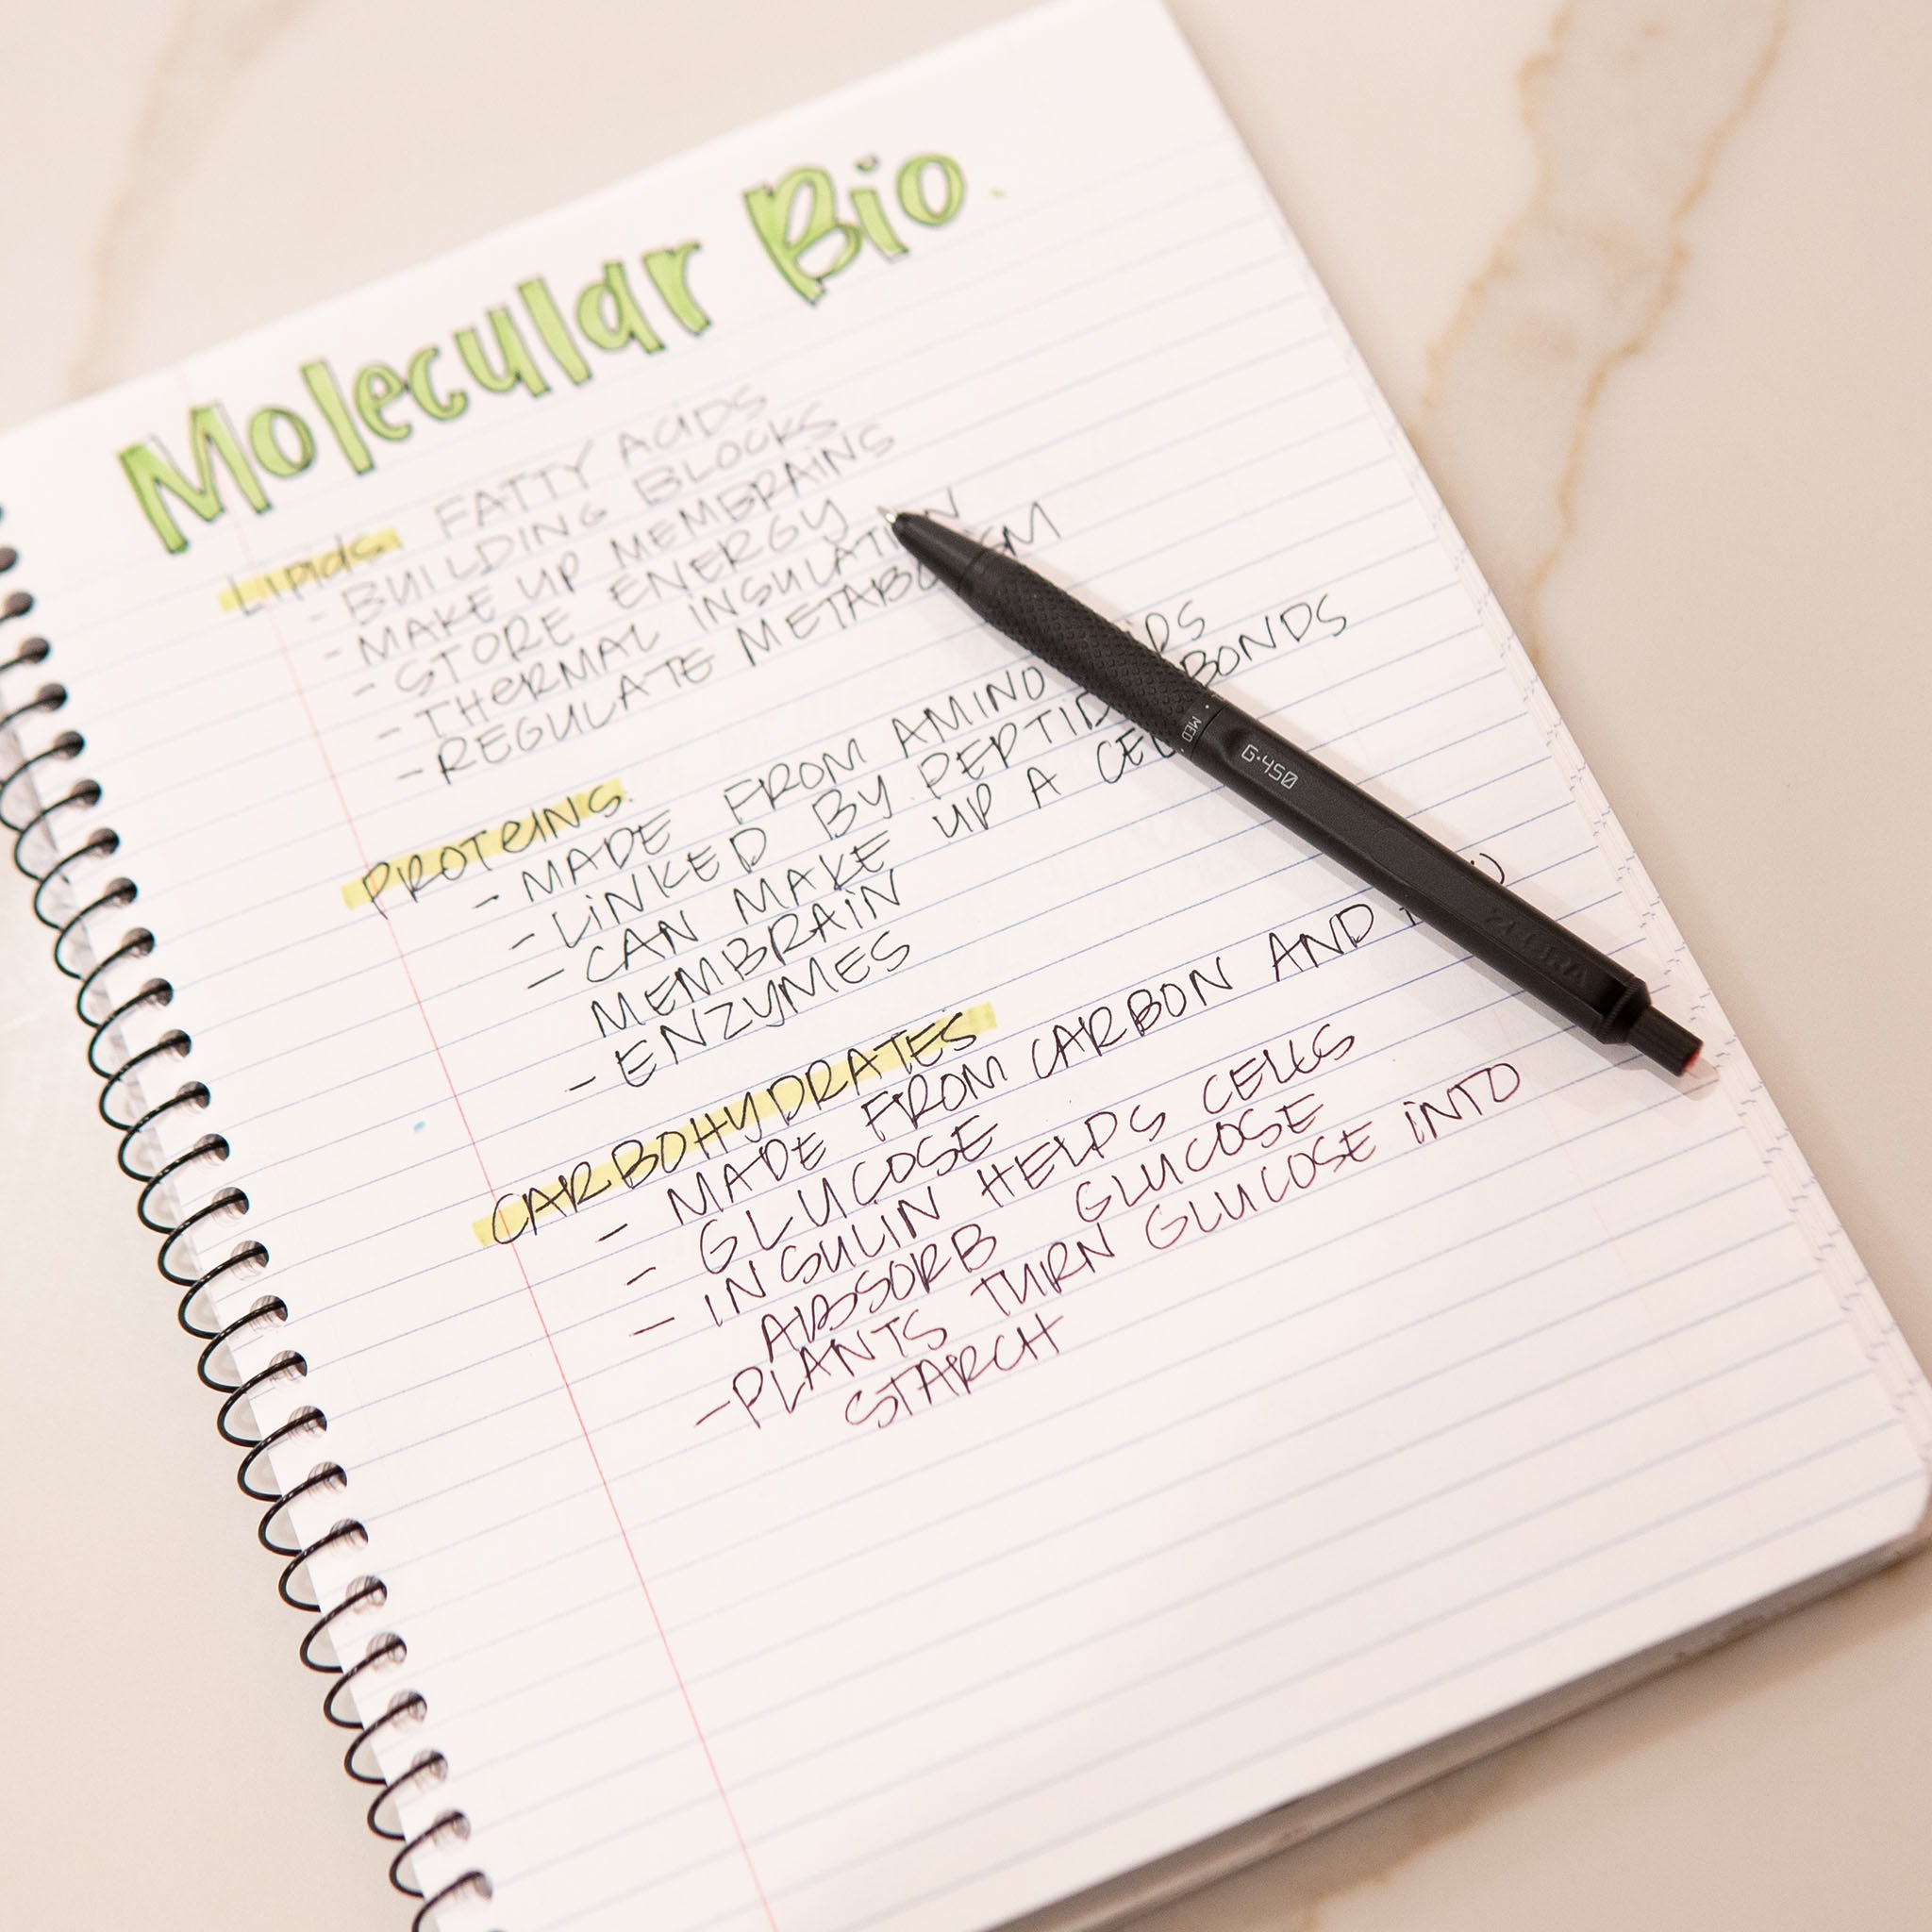 Molecular Bio.
Lipids FATTY ACIDS
- BUILDING BLOCKS
- MAKE UP MEMBRAINS
- STORE ENERGY
- THERMAL INSULATION
- REGULATE METABOLISM
PROTEINS.
- MADE FROM AMINO
- LINKED BY PEPTIDE BONDS
- CAN MAKE UP A CELL
MEMBRAIN
- ENZYMES
CARBOHYDRATES
- MADE FROM CARBON AND
- GLUCOSE
- INSULIN HELPS CELLS
ABSORB GLUCOSE
- PLANTS TURN GLUCOSE INTO
STARCH
MED
G-450
SAKURA